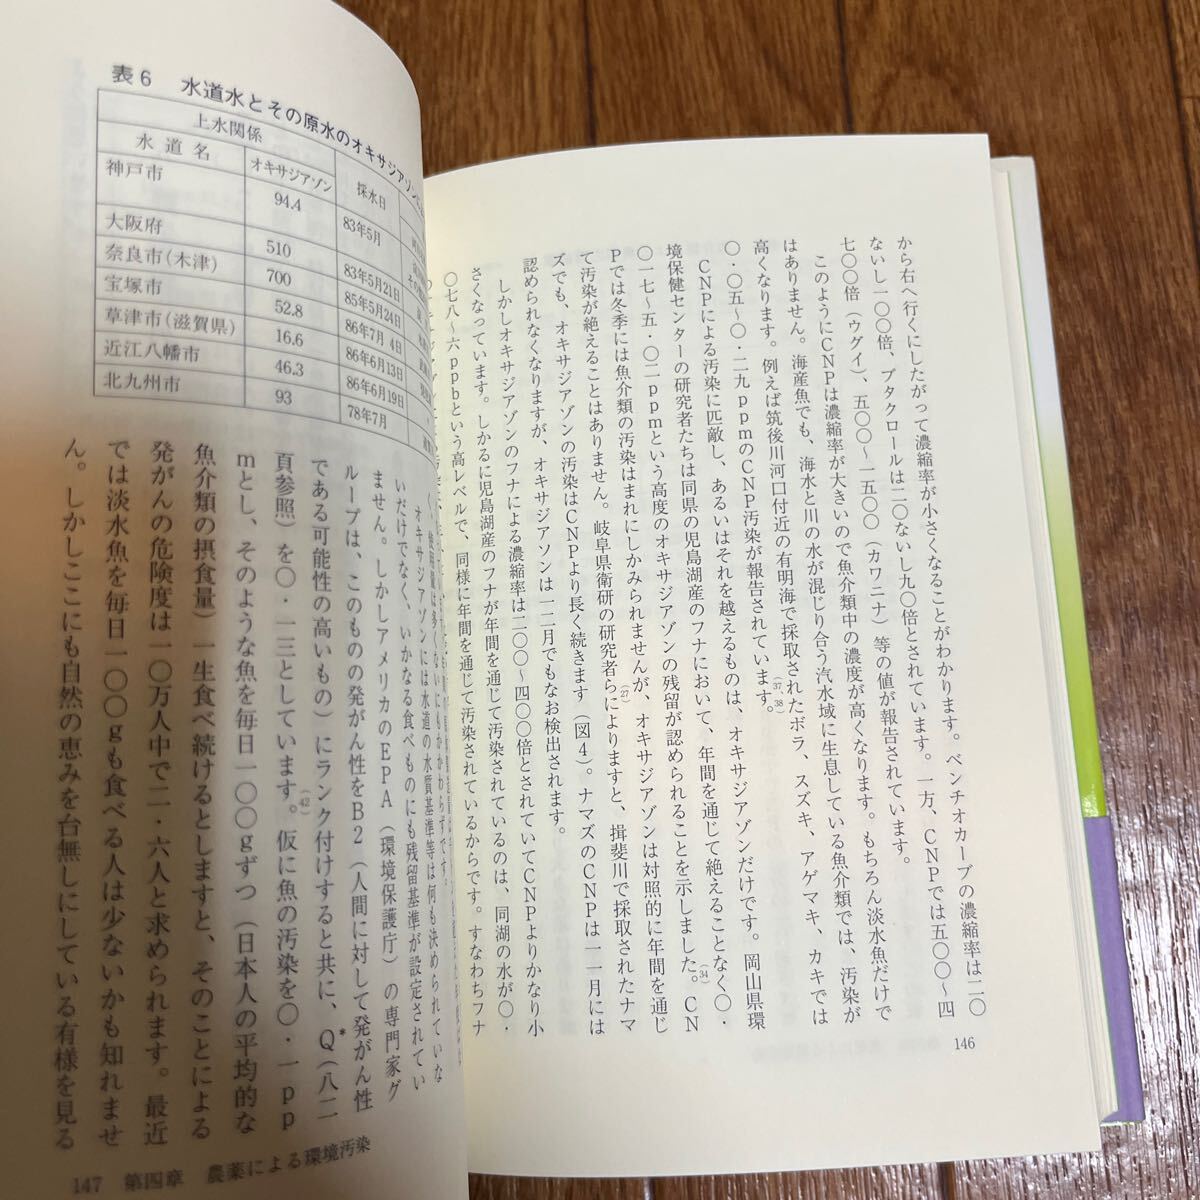 から右へ行くにしたがって濃縮率が小さくなることがわかります。ベンチオカーブの濃縮率は二〇
ないし一〇〇倍、ブタクロールは二〇ないし九〇倍とされています。一方、CNPでは五〇〇〜四
七〇〇倍(ウグイ)、五〇〇〜一五〇〇(カワニナ)等の値が報告されています。
このようにCNPは濃縮率が大きいので魚介類中の濃度が高くなります。もちろん淡水魚だけで
はありません。海産魚でも、海水と川の水が混じり合う汽水域に生息している魚介類では、汚染が
高くなります。例えば筑後川河口付近の有明海で採取されたボラ、スズキ、アゲマキ、カキでは
〇・〇五〜〇・二九ppmのCNP汚染が報告されています。(37、38)
CNPによる汚染に匹敵し、あるいはそれを越えるものは、オキサジアゾンだけです。岡山県環
境保健センターの研究者たちは同県の児島湖産のフナにおいて、年間を通じて絶えることなく〇・
〇一七〜五・〇二ppmという高度のオキサジアゾンの残留が認められることを示しました。(34)CN
Pでは冬季には魚介類の汚染はまれにしかみられませんが、オキサジアゾンは対照的に年間を通じ
て汚染が絶えることはありません。(27)岐阜県衛研の研究者らによりますと、揖斐川で採取されたナマ
ズでも、オキサジアゾンの汚染はCNPより長く続きます(図4)。ナマズのCNPは一一月には
認められなくなりますが、オキサジアゾンは一二月でもなお検出されます。
しかしオキサジアゾンのフナによる濃縮率は二〇〇〜四〇〇倍とされていてCNPよりかなり小
さくなっています。しかるに児島湖産のフナが年間を通じて汚染されているのは、同湖の水が〇・
〇七八〜六ppbという高レベルで、同様に年間を通じて汚染されているからです。すなわちフナ
146
表6 水道水とその原水のオキサジアゾン
上水関係
水道名 オキサジアゾン 採水日
神戸市 94.4 83年5月
大阪府 510 83年5月21日
奈良市(木津) 700 85年5月24日
宝塚市 52.8 86年7月4日
草津市(滋賀県) 16.6 86年6月13日
近江八幡市 46.3 86年6月19日
北九州市 93 78年7月
オキサジアゾンには水道の水質基準等は何も決められていな
いだけでなく、いかなる食べものにも残留基準が設定されてい
ません。しかしアメリカのEPA(環境保護庁)の専門家グ
ループは、このものの発がん性をB2(人間に対して発がん性
である可能性の高いもの)にランク付けすると共に、Q*(八二
頁参照)を〇・一三としています。(42)仮に魚の汚染を〇・一pp
mとし、そのような魚を毎日一〇〇gずつ(日本人の平均的な
魚介類の摂食量)一生食べ続けるとしますと、そのことによる
発がんの危険度は一〇万人中で二・六人と求められます。最近
では淡水魚を毎日一〇〇gも食べる人は少ないかも知れませ
ん。しかしここにも自然の恵みを台無しにしている有様を見る
147 第四章 農薬による環境汚染